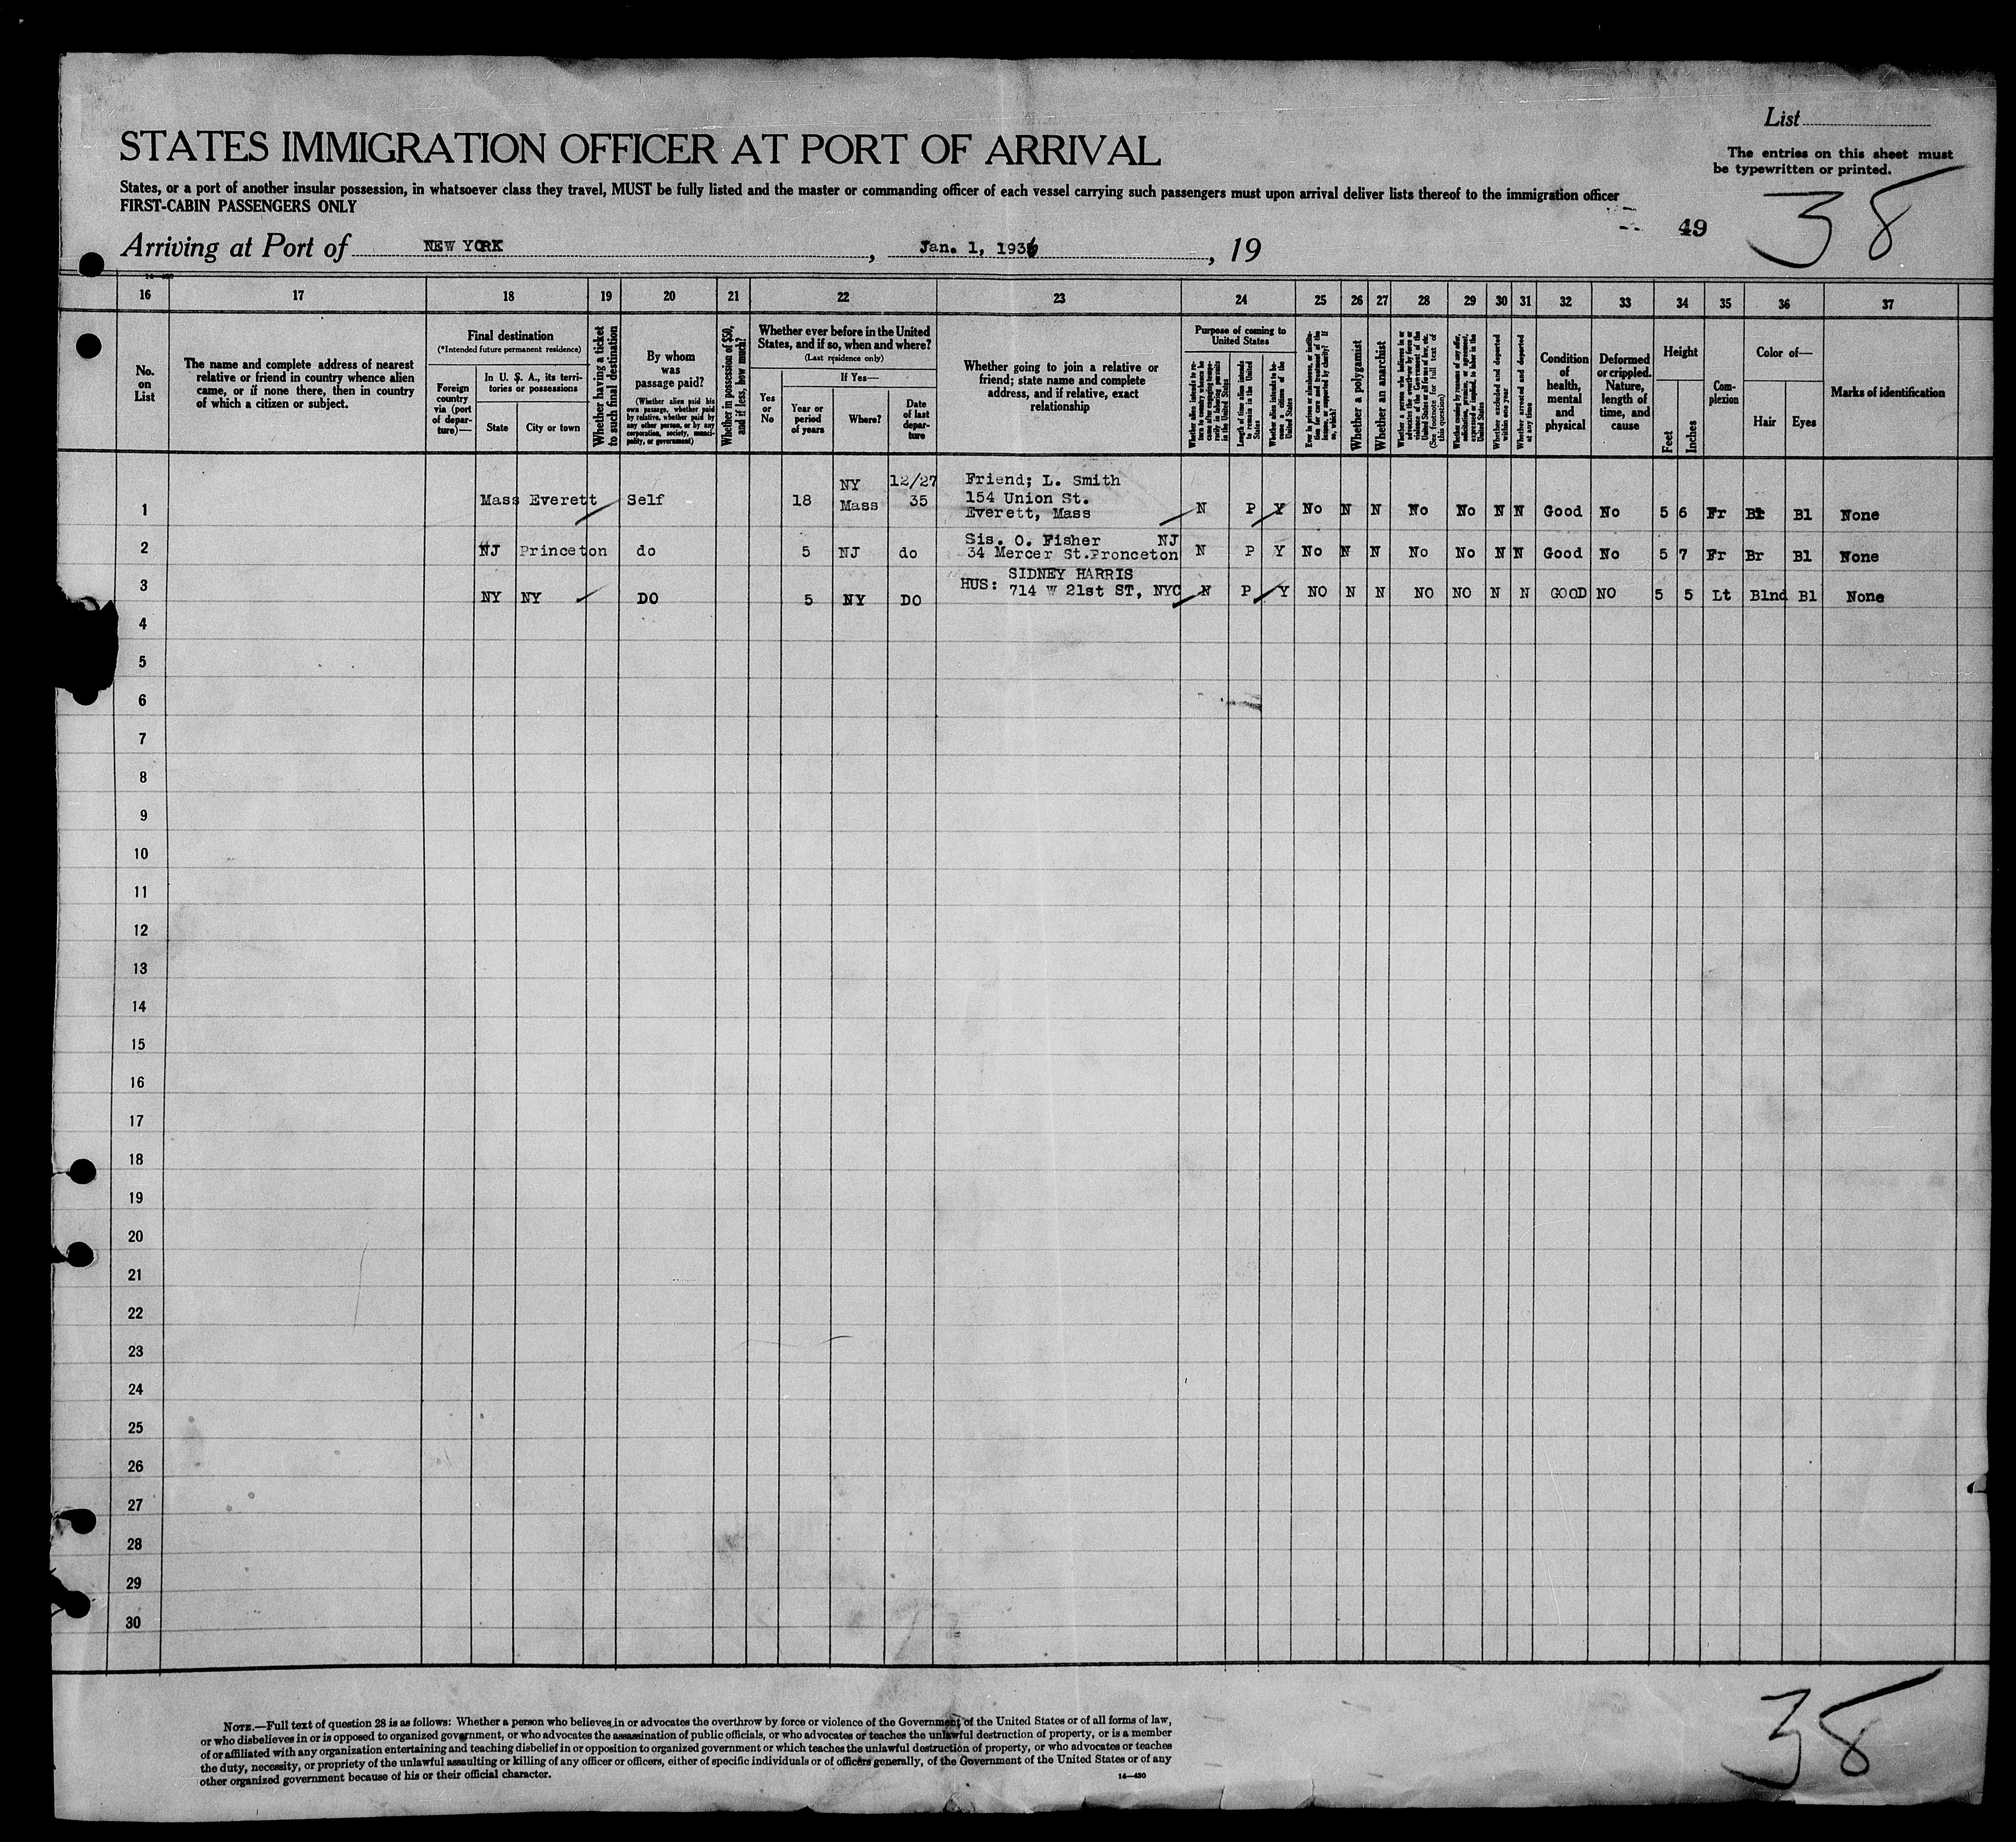 List
STATES IMMIGRATION OFFICER AT PORT OF ARRIVAL
The entries on this sheet must
be typewritten or printed.
States, or a port of another insular possession, in whatsoever class they travel, MUST be fully listed and the master or commanding officer of each vessel carrying such passengers must upon arrival deliver lists thereof to the immigration officer
FIRST-CABIN PASSENGERS ONLY
49
38
Arriving at Port of NEW YORK, Jan. 1, 1936, 19
14-430
16 17 18 19 20 21 22 23 24 25 26 27 28 29 30 31 32 33 34 35 36 37
No.
on
List
The name and complete address of nearest
relative or friend in country whence alien
came, or if none there, then in country
of which a citizen or subject.
Final destination
(*Intended future permanent residence)
Foreign
country
via (port
of depar-
ture)—
In U. S. A., its terri-
tories or possessions
State
City or town
Whether having a ticket
to such final destination
By whom
was
passage paid?
(Whether alien paid his
own passage, whether paid
by relative, whether paid by
any other person, or by any
corporation, society, munici-
pality, or government)
Whether in possession of $50,
and if less, how much?
Whether ever before in the United
States, and if so, when and where?
(Last residence only)
Yes
or
No
If Yes—
Year or
period
of years
Where?
Date
of last
depar-
ture
Whether going to join a relative or
friend; state name and complete
address, and if relative, exact
relationship
Purpose of coming to
United States
Length of time alien intends
to remain in the United
States
Whether alien intends to be-
come a citizen of the
United States
Whether a polygamist
Whether an anarchist
(See footnote for full text of
this question)
Whether excluded and deported
within one year
Whether arrested and deported
at any time
Condition
of
health,
mental
and
physical
Deformed
or crippled.
Nature,
length of
time, and
cause
Height
Feet
Inches
Com-
plexion
Color of—
Hair
Eyes
Marks of identification
NY 12/27 Friend; L. Smith
1 Mass Everett Self 18 Mass 35 154 Union St.
Everett, Mass N P Y No N N No No N N Good No 5 6 Fr Br Bl None
Sis. O. Fisher NJ
2 NJ Princeton do 5 NJ do 34 Mercer St.Pronceton N P Y No N N No No N N Good No 5 7 Fr Br Bl None
SIDNEY HARRIS
3 NY NY DO 5 NY DO HUS: 714 W 21st ST, NYC N P Y NO N N NO NO N N GOOD NO 5 5 Lt Blnd Bl None
4
5
6
7
8
9
10
11
12
13
14
15
16
17
18
19
20
21
22
23
24
25
26
27
28
29
30
NOTE.—Full text of question 28 is as follows: Whether a person who believes in or advocates the overthrow by force or violence of the Government of the United States or of all forms of law,
or who disbelieves in or is opposed to organized government, or who advocates the assassination of public officials, or who advocates or teaches the unlawful destruction of property, or is a member
of or affiliated with any organization entertaining and teaching disbelief in or opposition to organized government or which teaches the unlawful destruction of property, or who advocates or teaches
the duty, necessity, or propriety of the unlawful assaulting or killing of any officer or officers, either of specific individuals or of officers generally, of the Government of the United States or of any
other organized government because of his or their official character.
14-430
38